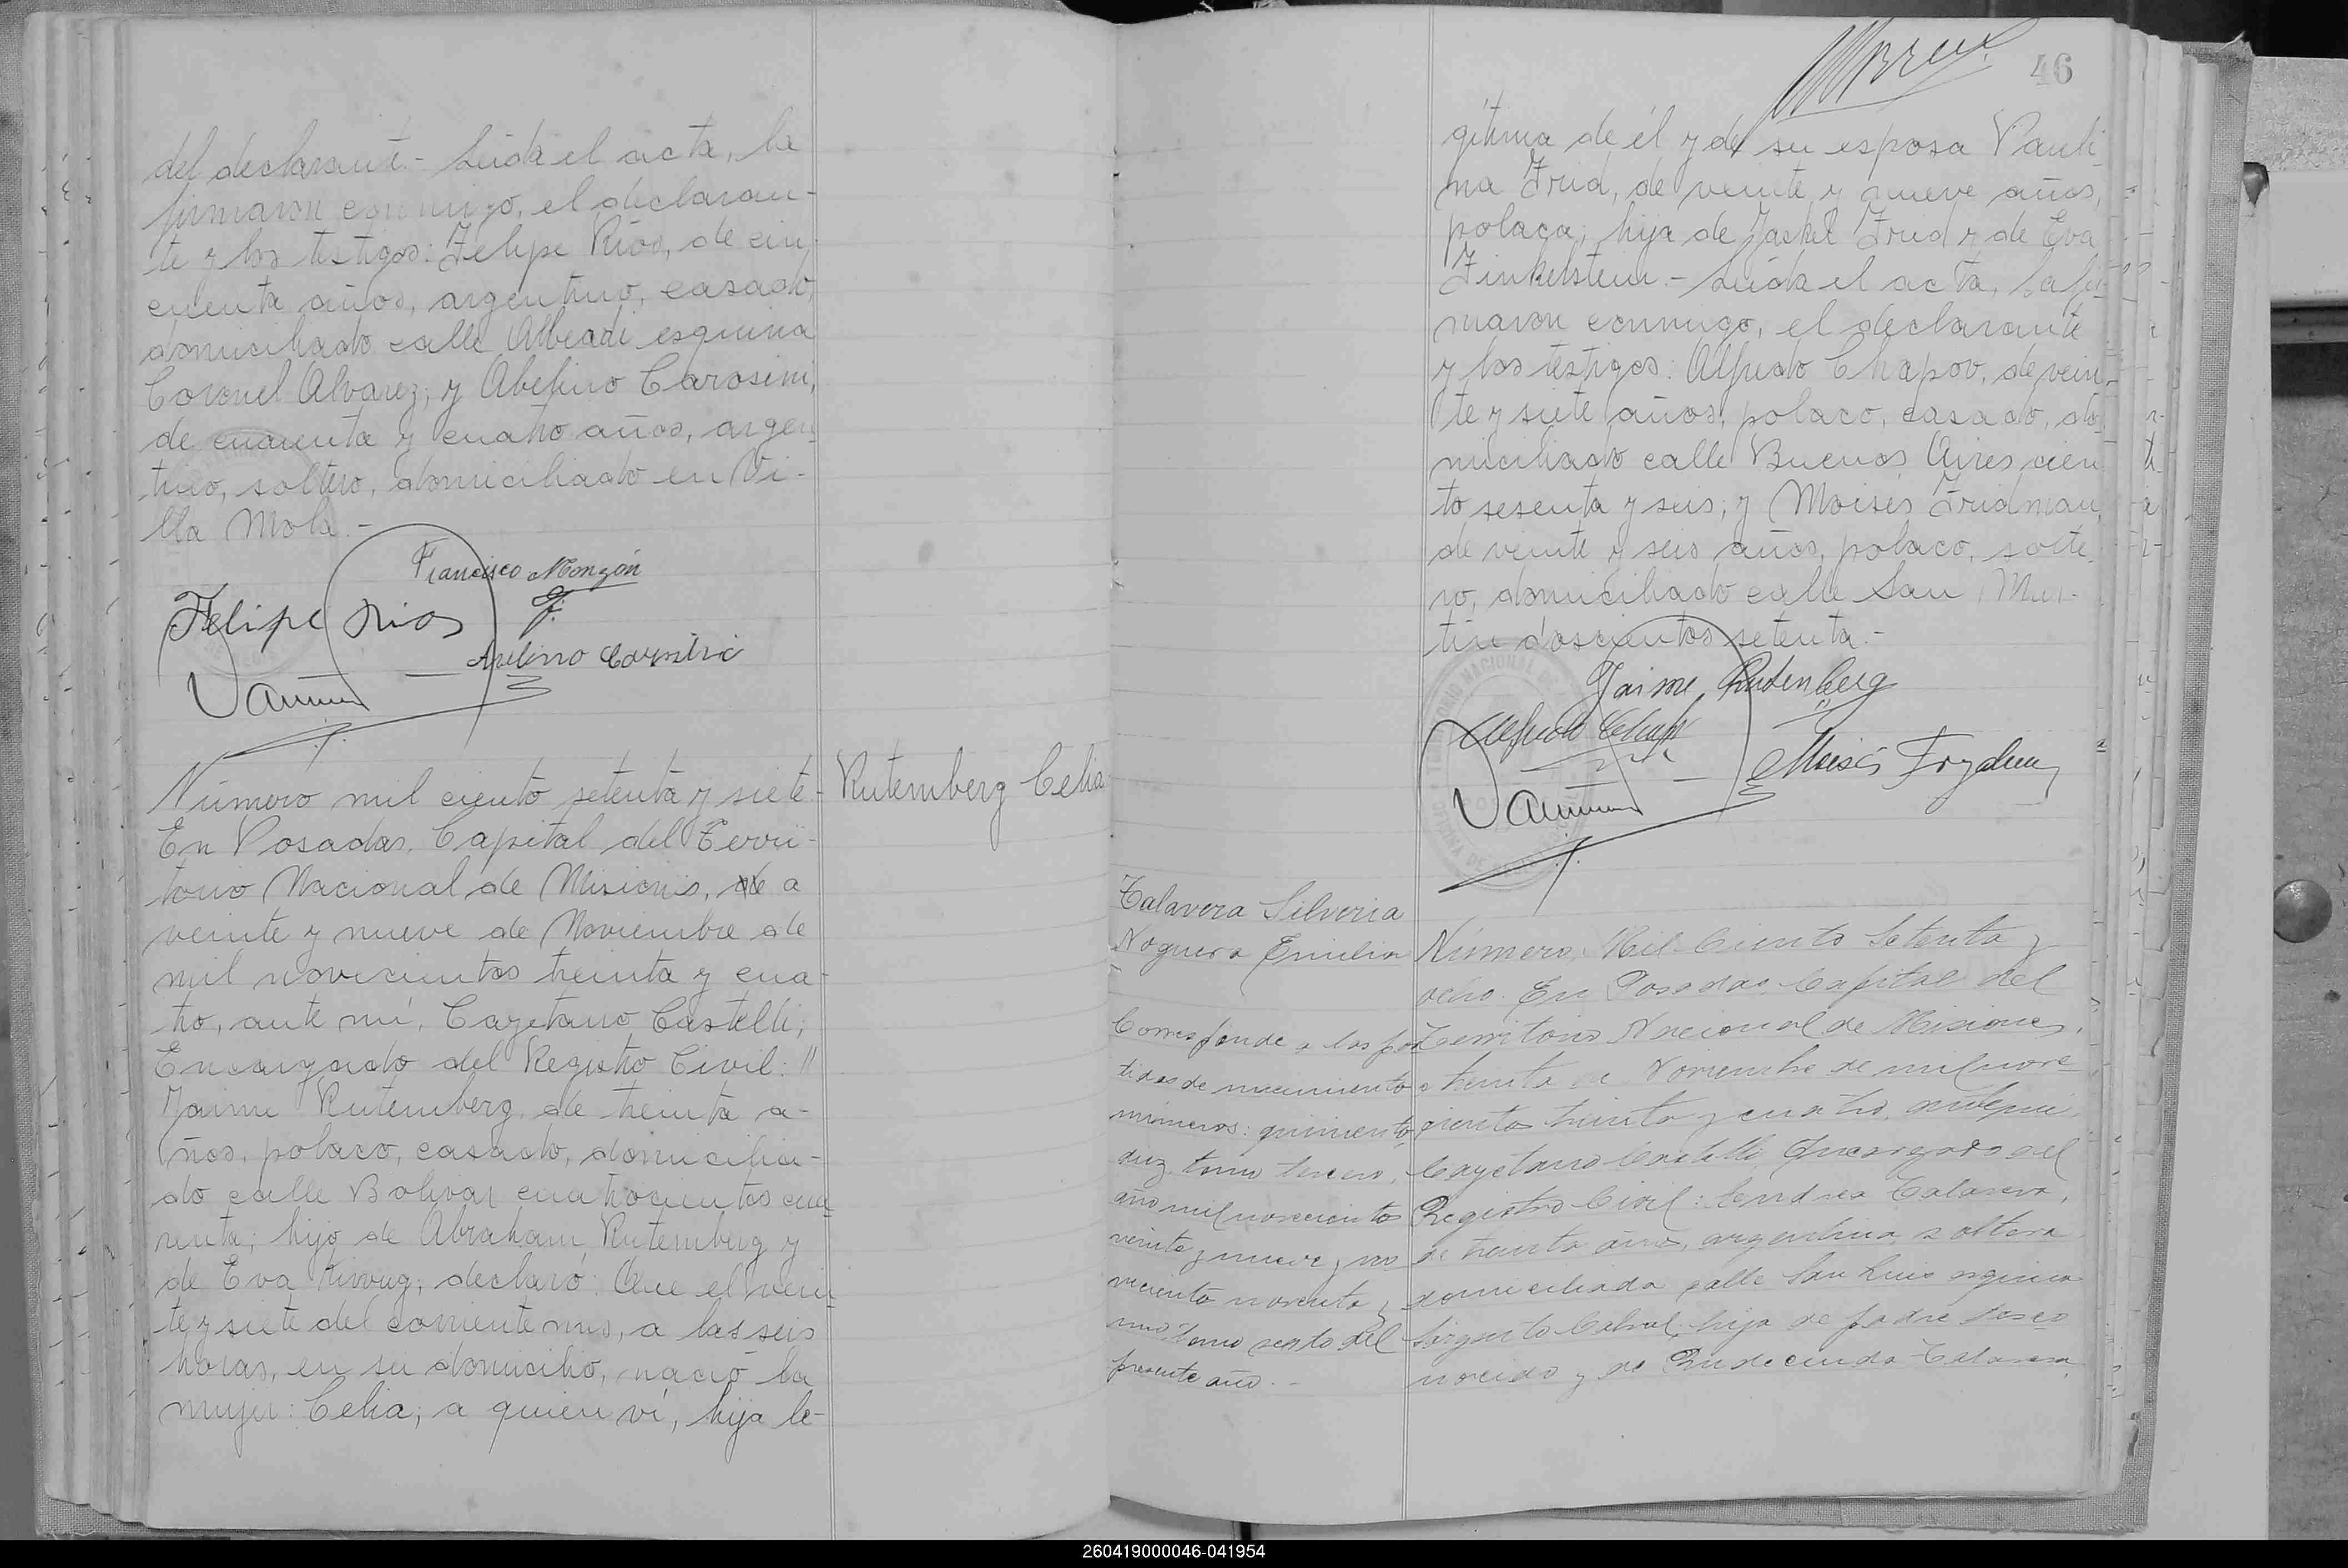 del declarante.- Leída el acta, la
firmaron conmigo, el declaran-
te y los testigos: Felipe Ríos, de cin-
cuenta años, argentino, casado,
domiciliado calle Alberdi esquina
Coronel Alvarez; y Abelino Carosini,
de cuarenta y cuatro años, argen-
tino, soltero, domiciliado en Vi-
lla Mola.-
Francisco Monzón
Felipe Rios
Avelino
Número mil ciento setenta y siete-
En Posadas, Capital del Terri-
torio Nacional de Misiones, de a
veinte y nueve de Noviembre de
mil novecientos treinta y cua-
tro, ante mí, Cayetano Castelli,
Encargado del Registro Civil: "
Jaime Rutemberg, de treinta a-
ños, polaco, casado, domicilia-
do calle Bolivar cuatrocientos cua-
renta; hijo de Abraham Rutemberg y
de Eva declaró: Que el vein-
te y siete del corriente mes, a las seis
horas, en su domicilio, nació la
mujer: Celia; a quien ví, hija le-
Rutemberg Celia
46
gítima de él y de su esposa Pauli-
na Frid, de veinte y nueve años,
polaca; hija de Jaskel Frid y de Eva
Finkelstein.- Leída el acta, la fir-
maron conmigo, el declarante
y los testigos: Alfredo Chapov, de vein-
te y siete años, polaco, casado, do-
miciliado calle Buenos Aires cien-
to sesenta y seis; y Moisés Fridman,
de veinte y seis años, polaco, solte-
ro, domiciliado calle San Mar-
tín doscientos setenta.-
Jaime Rutenberg
Alfredo
Moisés
Talavera Silveria
Noguera Emilia
Corresponde a las par
tidas de nacimiento
números: quiniento
diez, tomo tercero,
año mil novecientos
veinte y nueve y no
veciento noventa y
uno tomo sexto del
presente año.-
Número, Mil Ciento Setenta y
ocho. En Posadas, Capital del
Territorio Nacional de Misiones,
a treinta de Noviembre de mil nove
cientos treinta y cuatro, ante mí,
Cayetano Castelli, Encargado del
Registro Civil: Talavera,
de treinta años, argentina soltera
domiciliada calle San Luis esquina
Sargento Cabral, hija de padre desco
nocido y de Rudecinda Talavera,